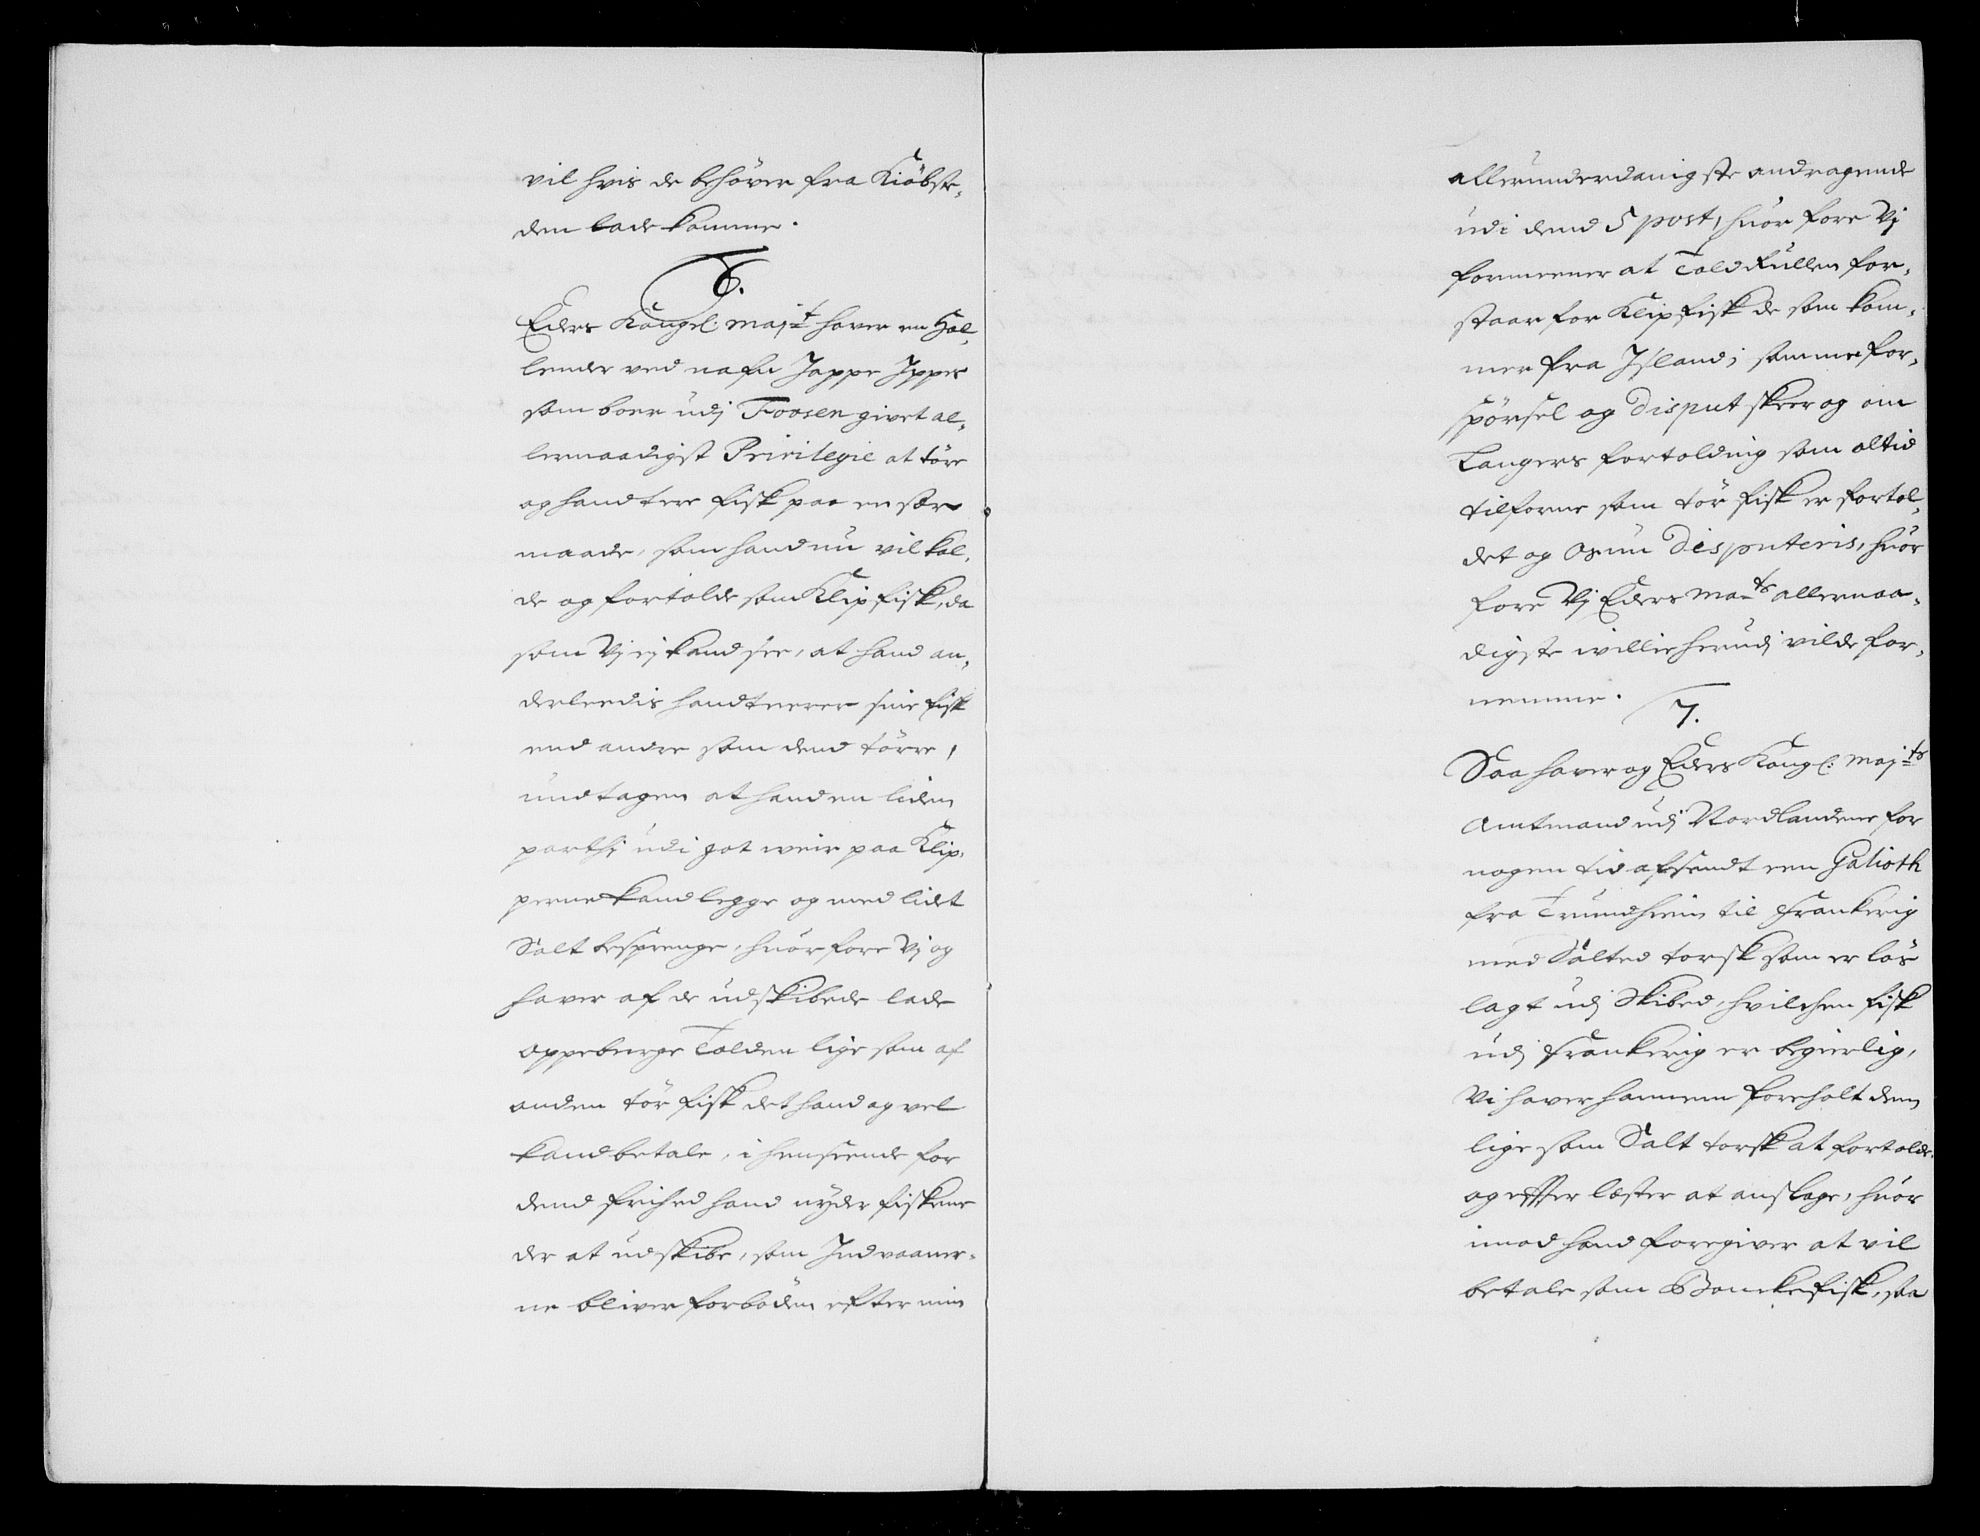 vil hvis de behöver fra Kiöbste-
den lade komme.
6.
Eders Kongel: Maj:t haver en Hol-
lender ved nafn Jappe Ippes
som boer udj Foosen givet al-
lernaadigst Privilegie at töre
og handtere fisk paa en sær
maade, som hand nu vil kal-
de og fortolde som Klipfisk, da
som Vj ej kand see, at hand an-
derleedis handterer sine fisk
end andre som dend törre,
undtagen at hand en liden
parthj udi got weir paa Klip-
perne kand legge og med lidet
Salt besprenge, huorfore Vj og
haver af de udskibede lade
oppeberge Tolden lige som af
anden tör fisk det hand og vel
kand betale, i henseende for
dend frihed hand nyder fiskene
der at udskibe, som Indvaaner-
ne bliver forböden efter min
allerunderdanigste andragende
udi dend 5 post, huor fore Vj
formeener at Toldrullen for-
staar for Klipfisk de som kom-
mer fra Island; samme for-
spörsel og disput skeer og om
Langers fortolding som altid
tilforne som tör fisk er fortol-
det og nu disputeris, huor
fore Vj Eders Ma:ts allernaa-
digste willie herudj vilde for-
nemme.
7.
Saa haver og Eders Kongl: Maj:ts
Amtmand udj Nordlandene for
nogen tid afsendt een Galioth
fra Trundhiem til Frankerig
med Salted torsk som er lös
lagt udj Skibed, hvilchen fisk
udj Frankerig er begierlig,
Vi haver hannem foreholt dem
lige som Salt torsk at fortolde
og effter læster at anslage, huor
imod hand foregiver at vil
betale som Bonckefisk, saa